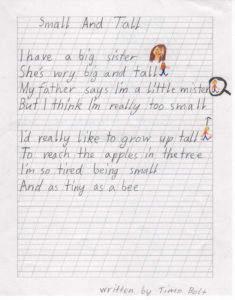 Small And Tall
I have a big sister
She's very big and tall
My father says I'm a little mister
But I think I'm really too small
I'd really like to grow up tall
To reach the apples in the tree
I'm so tired being small
And as tiny as a bee
written by Timo Bolt